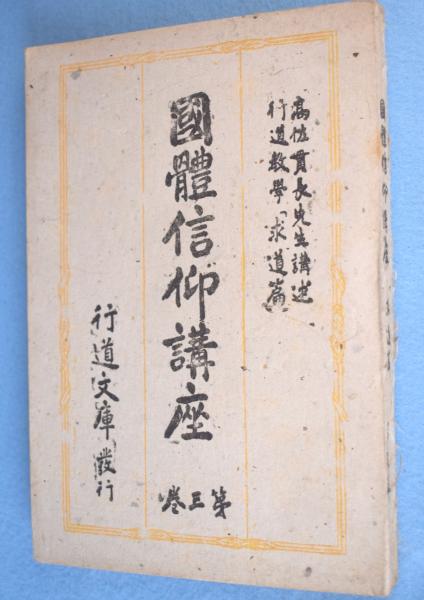 高佐貫長先生講述
行道教学「求道篇」
國體信仰講座
第三巻
行道文庫發行
國體信仰講座